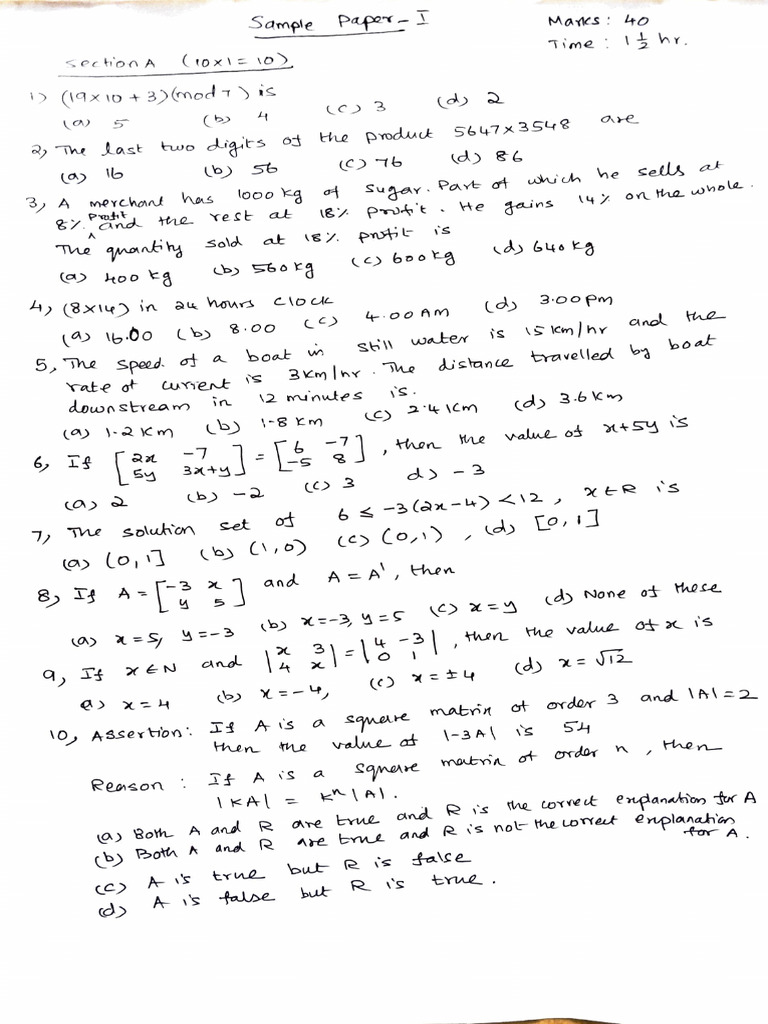 Sample Paper - I
Marks: 40
Time: 1 ½ hr.
Section A (10×1=10)
1) (19×10+3)(mod 7) is
(a) 5 (b) 4 (c) 3 (d) 2
2) The last two digits of the product 5647×3548 are
(a) 16 (b) 56 (c) 76 (d) 86
3) A merchant has 1000 kg of sugar. Part of which he sells at
8% profit and the rest at 18% profit. He gains 14% on the whole.
The quantity sold at 18% profit is
(a) 400 kg (b) 560 kg (c) 600 kg (d) 640 kg
4) (8×14) in 24 hours clock
(a) 16.00 (b) 8.00 (c) 4.00 AM (d) 3.00 pm
5, The speed of a boat in still water is 15 km/hr and the
rate of current is 3 km/hr. The distance travelled by boat
downstream in 12 minutes is.
(a) 1.2 km (b) 1.8 km (c) 2.4 km (d) 3.6 km
6, If [2x -7; 5y 3x+y] = [6 -7; -5 8], then the value of x+5y is
(a) 2 (b) -2 (c) 3 d) -3
7, The solution set of 6 ≤ -3(2x-4) < 12, x∈R is
(a) (0,1] (b) (1,0) (c) (0,1), (d) [0,1]
8, If A = [-3 x; y 5] and A = A', then
(a) x=5, y=-3 (b) x=-3, y=5 (c) x=y (d) None of these
9, If x∈N and |x 3; 4 x| = |4 -3; 0 1|, then the value of x is
a) x=4 (b) x=-4, (c) x=±4 (d) x=√12
10, Assertion: If A is a square matrix of order 3 and |A|=2
then the value of |-3A| is 54
Reason: If A is a square matrix of order n, then
|KA| = Kⁿ|A|.
(a) Both A and R are true and R is the correct explanation for A
(b) Both A and R are true and R is not the correct explanation
for A.
(c) A is true but R is false
(d) A is false but R is true.